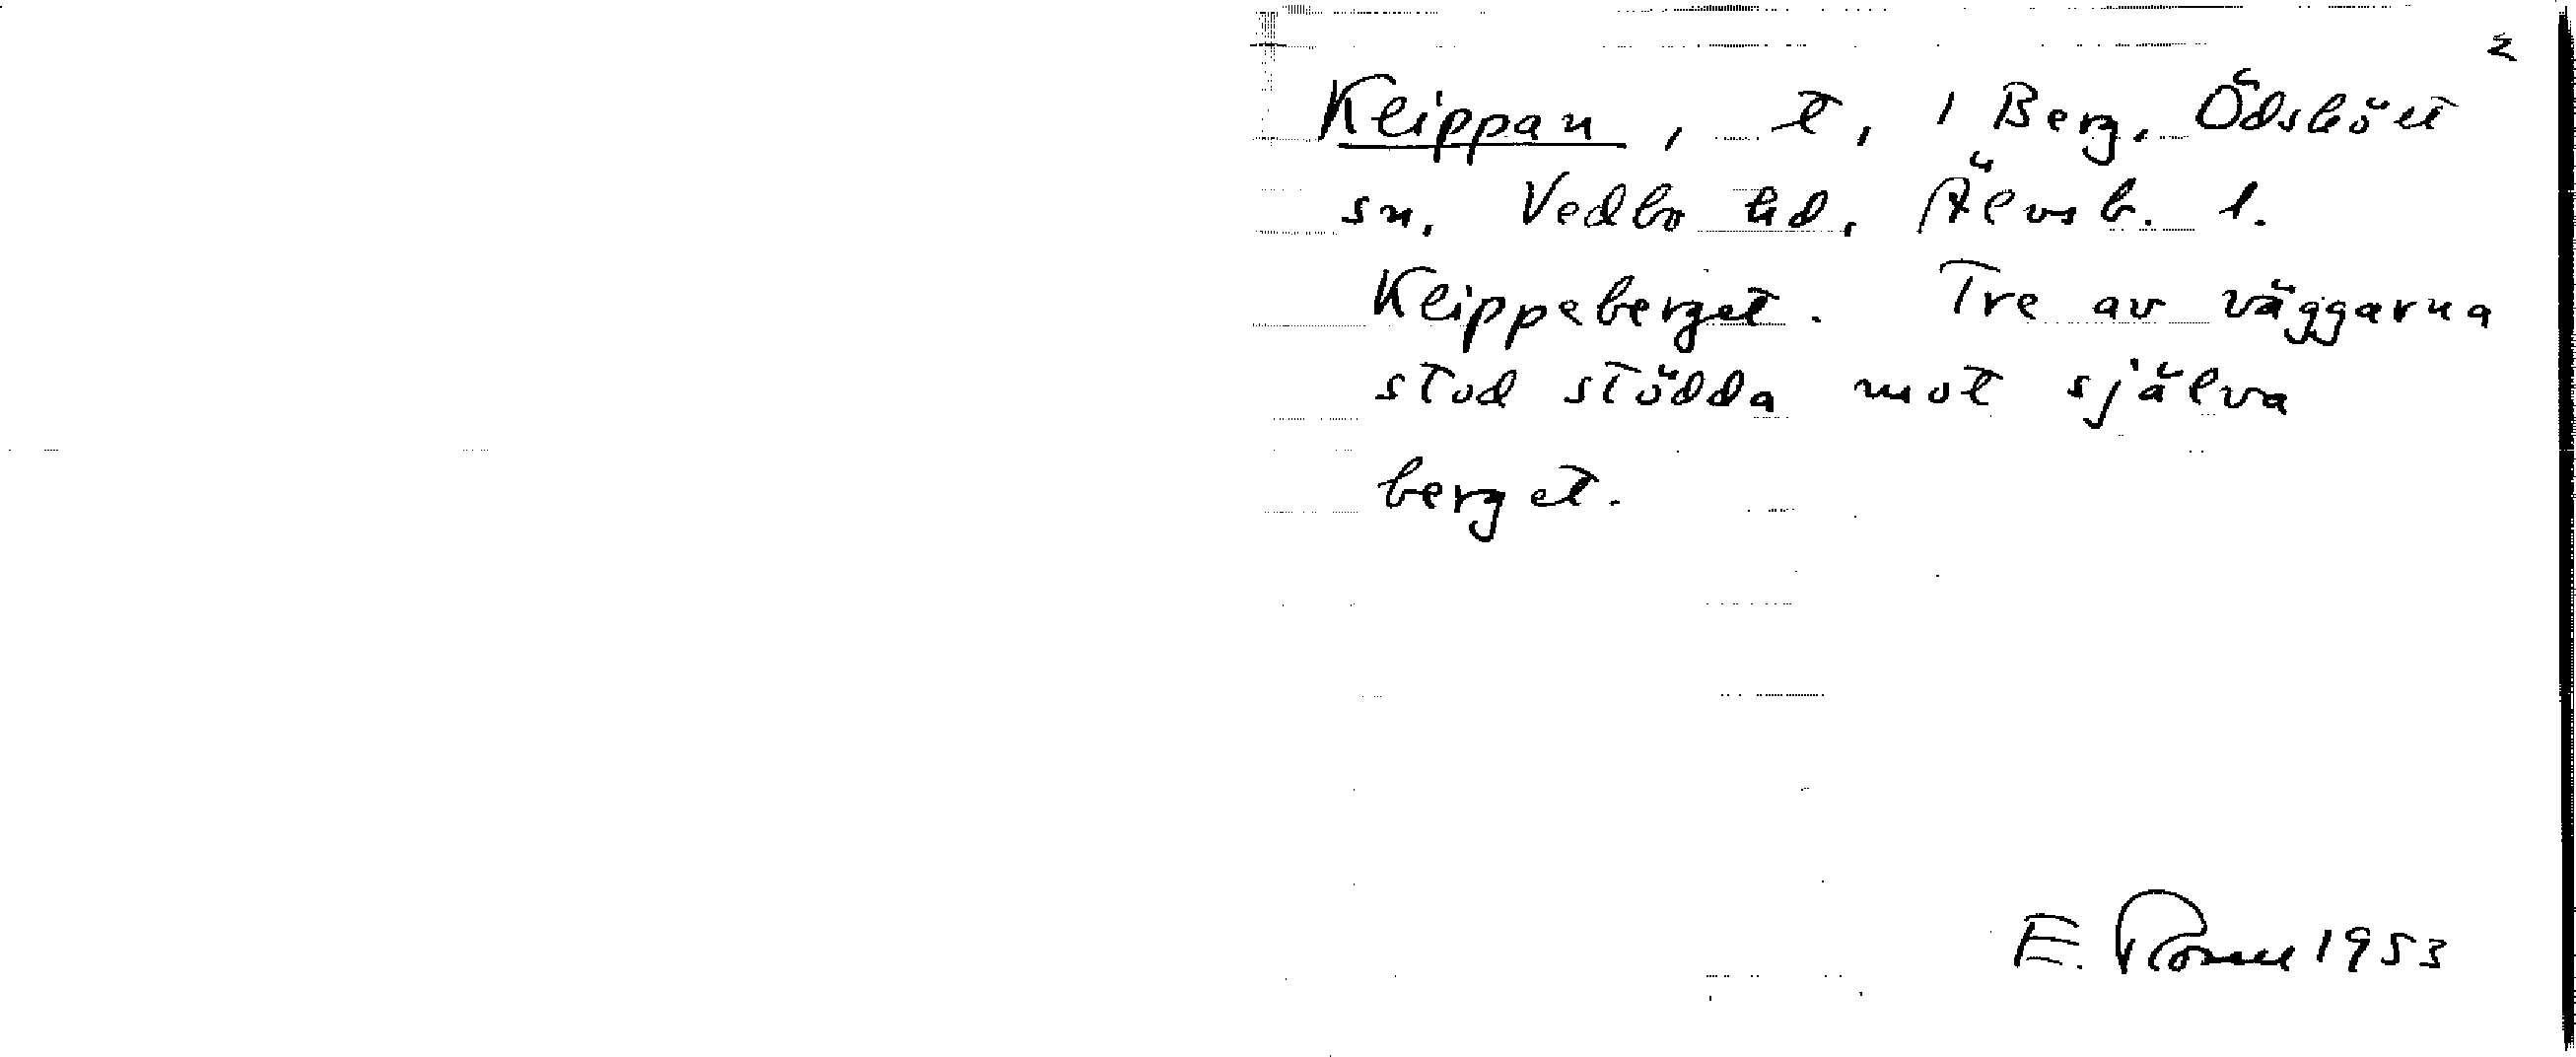 Klippan, t, 1 Berg, Ödsköet
sn, Vedbo hd, Älvsb. l.
Klippeberget. Tre av väggarna
stod stödda mot själva
berget.
E. 1953